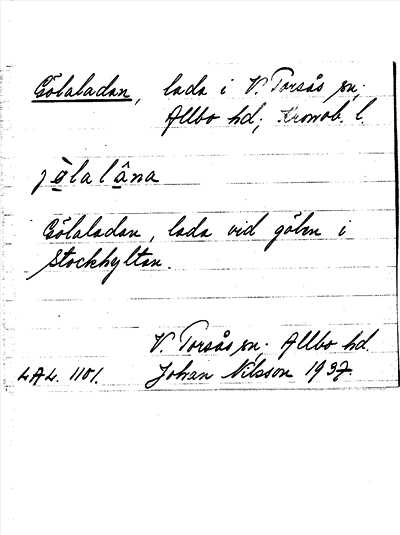 Gölaladan, lada i V. Torsås sn;
Allbo hd; Kronob. l.
jölalåna
Gölaladan, lada vid gölen i
Stockhyltan.
V. Torsås sn; Allbo hd.
LAL. 1101. Johan Nilsson 1937.